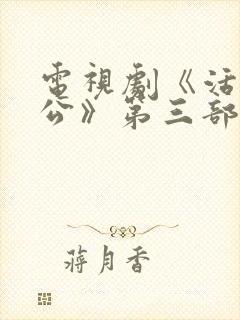 電視劇《活
公》第三部
蔣月香